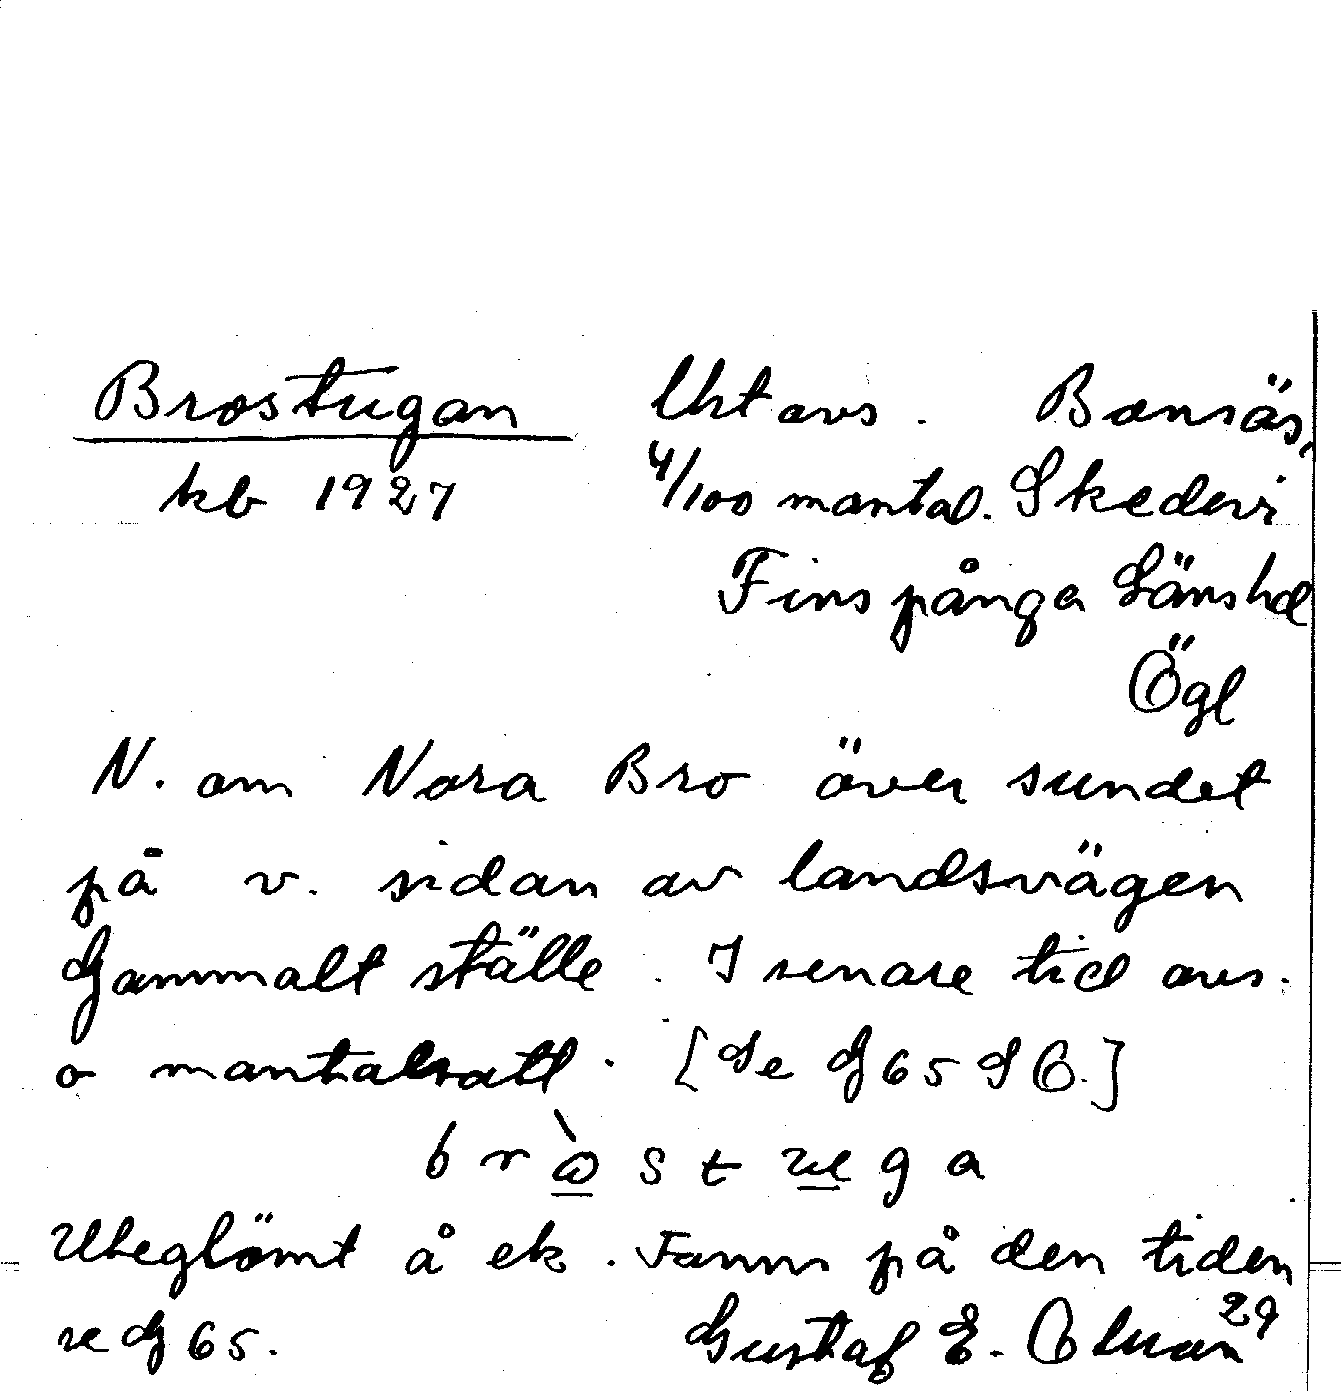 Brostugan Utavs. Bonnäs,
kb 1927 4/100 mantal. Skedevi
Finspånga Länshd
Ögl
N. om Nora Bro över sundet
på v. sidan av landsvägen
Gammalt ställe. I senare tid avs.
o mantalsatt. [Se G65 SO.]
bròstuga
Uteglömt å ek. Fanns på den tiden
se G 65. Gustaf E. Olsson 29